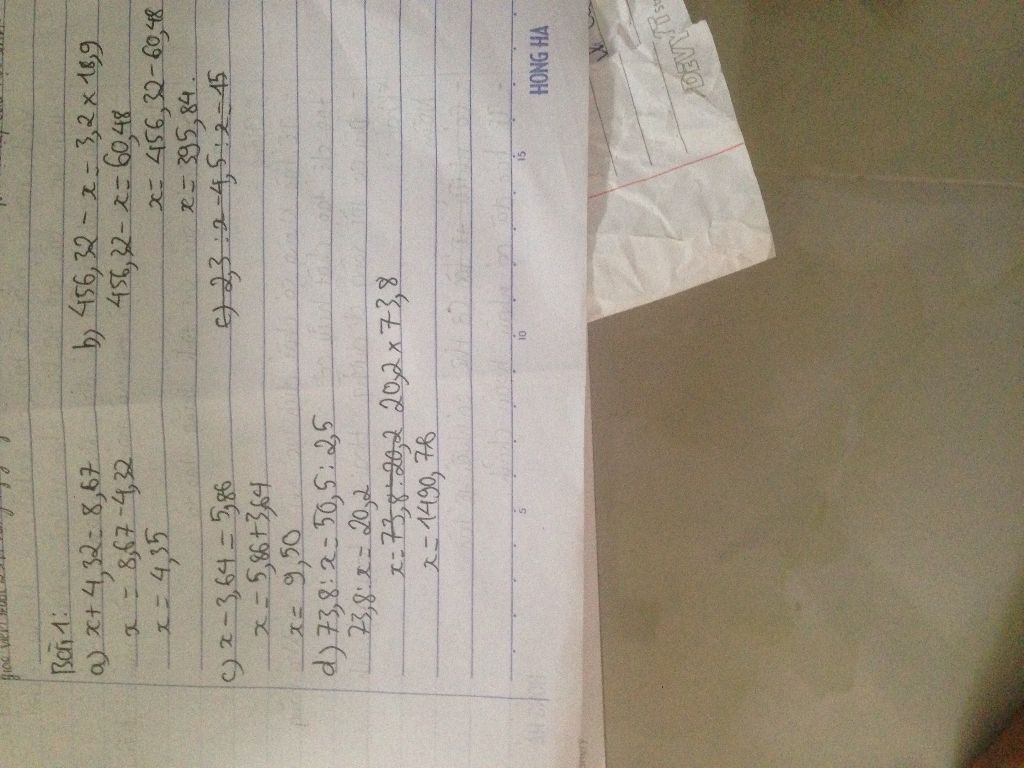 Bài 1:
a) x + 4,32 = 8,67
x = 8,67 - 4,32
x = 4,35
b) 456,32 - x = 3,2 x 18,9
456,32 - x = 60,48
x = 456,32 - 60,48
x = 395,84.
c) x - 3,64 = 5,86
x = 5,86 + 3,64
x = 9,50
c) 2,3 : x - 4,5 : x = 45
d) 73,8 : x = 50,5 : 2,5
73,8 : x = 20,2
x = 73,8 : 20,2 20,2 x 73,8
x = 1490,76
5
10
15
HONG HA